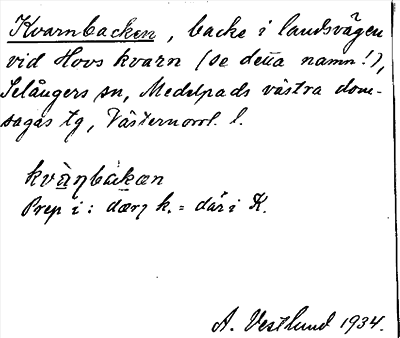 Kvarnbacken, backe i landsvägen
vid Hovs kvarn (se detta namn!),
Selångers sn, Medelpads västra dom-
sagas tg, Västernorrl. l.
kvàṇbàkæn
Prep i: dærj k. = där i K.
A. Vestlund 1934.